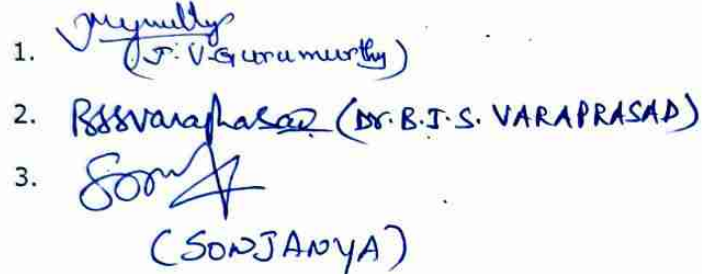 1.
(J.V.Gurumurthy)
2. BJSVaraprasad (Dr. B.J.S. VARAPRASAD)
3.
(SONJANYA)